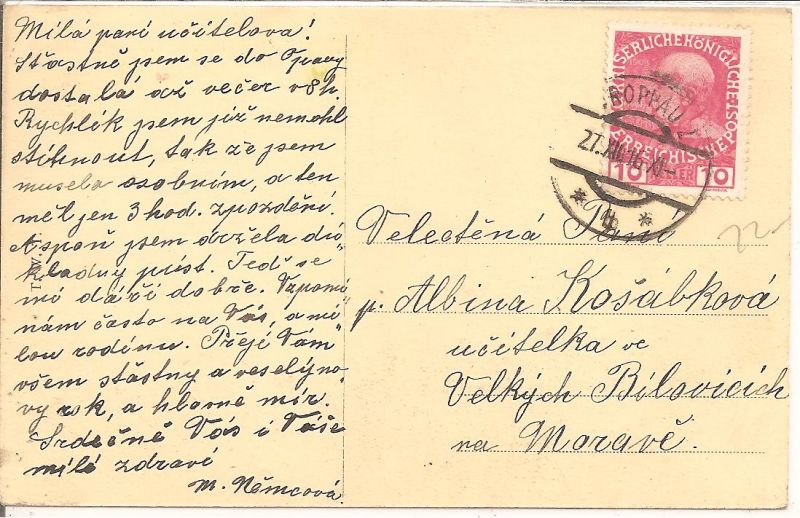 Milá paní učitelova!
Šťastně jsem se do Opavy
dostala až večer v 8 h.
Rychlík jsem již nemohl
stihnout, tak že jsem
musela osobním, a ten
měl jen 3 hod. zpoždění.
Aspoň jsem držela dů"
kladný půst. Teď se
mi dáří dobře. Vzpomí
nám často na Vás, a mi"
lou rodinu. Přeji Vám"
všem šťastny a veselý no"
vy rok, a hlavně mír.
Srdečně Vás i Váše
milé zdraví
M. Němcová.
KAISERLICHE KÖNIGLICHE
ÖSTERREICHISCHE POST
1908
10 HELLER 10
TROPPAU
27.XII.16.XI
* 4b *
Velectěná Paní
p. Albina Košábková
učitelka ve
Velkých Bílovicích
na Moravě.